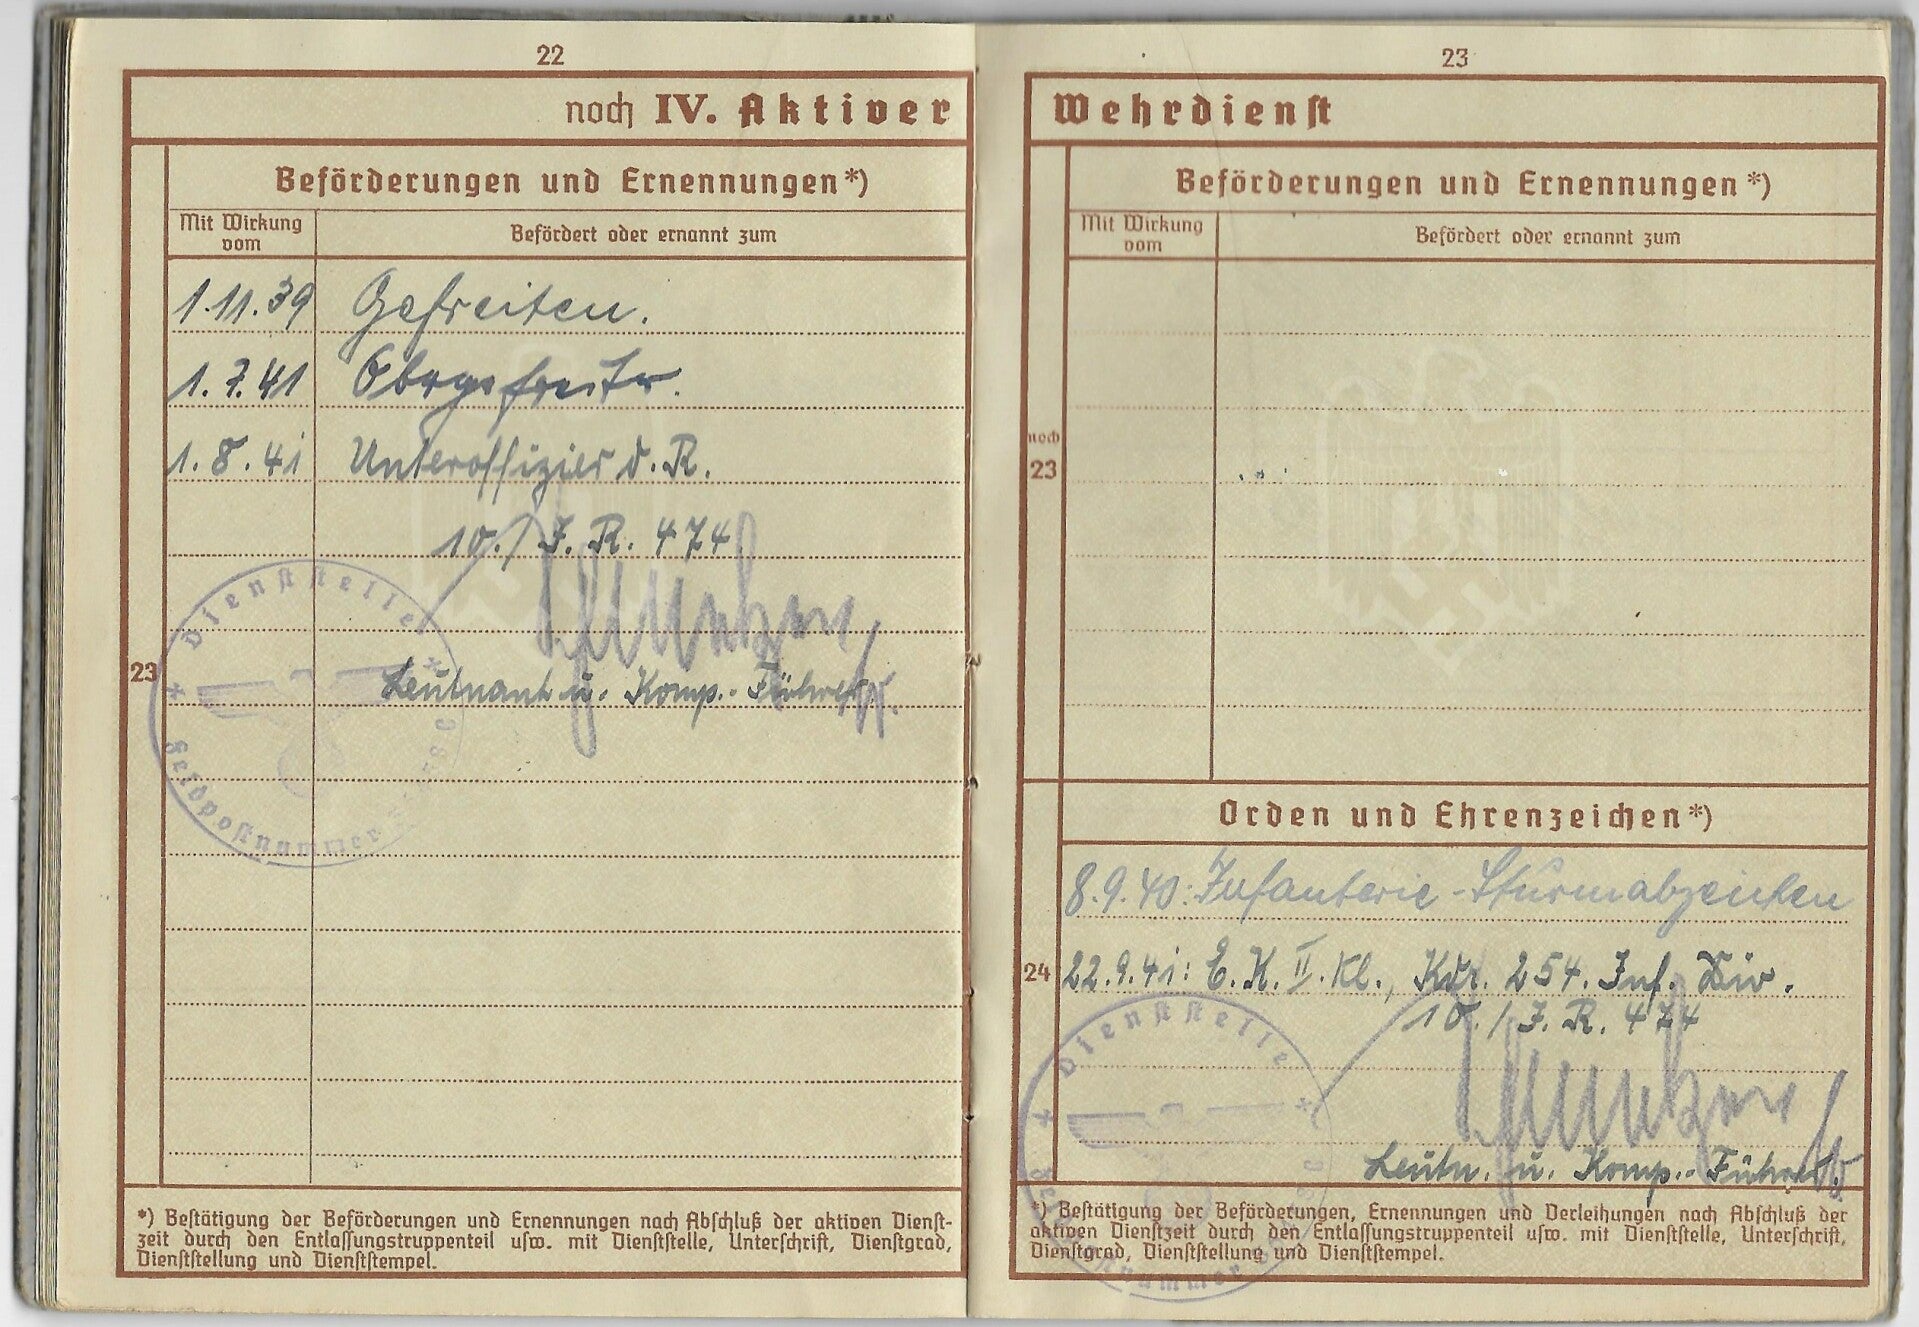 22
noch IV. Aktiver
Beförderungen und Ernennungen*)
Mit Wirkung vom
Befördert oder ernannt zum
1.11.39 Gefreiten.
1.7.41 Obergefreiter.
1.8.41 Unteroffizier d. R.
10./J.R. 474
23
Leutnant u. Komp.-Führer
Dienststelle
Feldpostnummer
*) Bestätigung der Beförderungen und Ernennungen nach Abschluß der aktiven Dienst-
zeit durch den Entlassungstruppenteil usw. mit Dienststelle, Unterschrift, Dienstgrad,
Dienststellung und Dienststempel.
23
Wehrdienst
Beförderungen und Ernennungen*)
Mit Wirkung vom
Befördert oder ernannt zum
noch
23
Orden und Ehrenzeichen*)
8.9.40: Infanterie-Sturmabzeichen
24
22.9.41: E.K. II. Kl., Kdr. 254. Inf. Div.
10./J.R. 474
Dienststelle
Leutn. u. Komp.-Führer
*) Bestätigung der Beförderungen, Ernennungen und Verleihungen nach Abschluß der
aktiven Dienstzeit durch den Entlassungstruppenteil usw. mit Dienststelle, Unterschrift,
Dienstgrad, Dienststellung und Dienststempel.